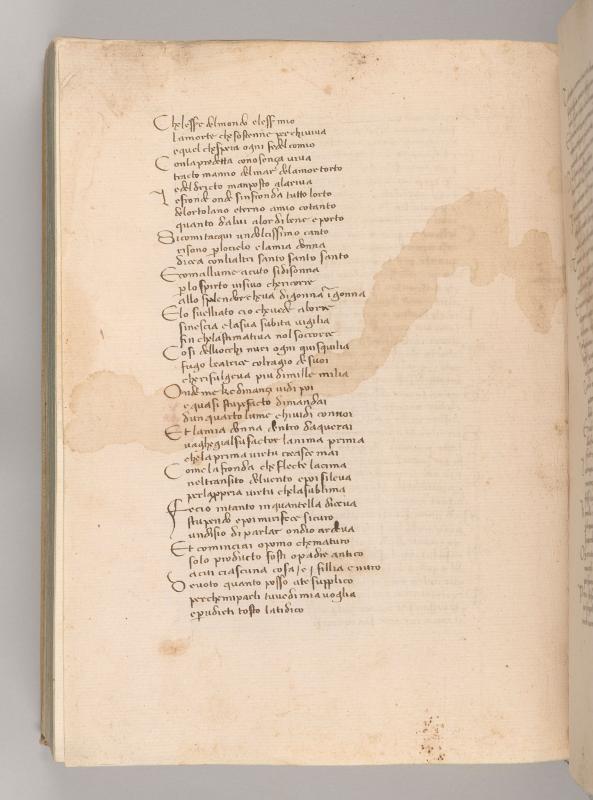 Chelessere delmondo elesser mio
Lamorte chesostenne perchiviva
equel chespera ogni fedel comio
Conlapredetta conoscença viva
tracto manno delmar delamor torto
edel dricto manposto alariva
Le fronde onde sinfronda tutto lorto
delortolano eterno amio cotanto
quanto dalui alor dibene eporto
Sicomitacqui undolcissimo canto
risono plocielo elamia donna
dicea conlialtri santo santo santo
Ecomallume acuto sidisonna
plo spirto visivo chericorre
allo splendor cheva digonna ī gonna
Elo svelliato cio chevede aborre
sinescia elasua subita vigilia
fin chelastimativa nol soccorre
Cosi delliocchi miei ogni quisquilia
fugo beatrice colragio desuoi
cherifulgeva piu dimille milia
Onde me ke dinançi vidi poi
equasi stupefacto dimandai
dun quarto lume chividi connoi
Et lamia donna dentro daquerai
vagheggialsufactor lanima prima
chela prima virtu creasse mai
Come lafronda che flecte lacima
neltransito delvento epoi sileva
perlappria virtu chelasublima
Fecio intanto inquantella diceva
stupendo epoi mirifece sicuro
undisio di parlar ondio ardeva
Et cominciai opomo chematuro
solo producto fosti opadre antico
acui ciascuna sposa e fillia e nuro
Devoto quanto posso ate supplico
perchemiparli tuvedi mia voglia
epudirti tosto latidico